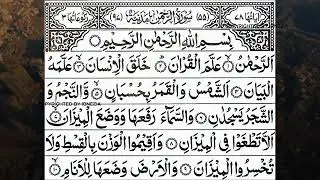 اٰیاتها ٧٨ (٥٥) سُوْرَةُ الرَّحْمٰنِ مَدَنِیَّةٌ (٩٧) رکوعاتها ٣
بِسْمِ اللهِ الرَّحْمٰنِ الرَّحِیْمِ
اَلرَّحْمٰنُ عَلَّمَ الْقُرْاٰنَ خَلَقَ الْاِنْسَانَ عَلَّمَهُ
الْبَیَانَ اَلشَّمْسُ وَالْقَمَرُ بِحُسْبَانٍ وَّالنَّجْمُ وَ
الشَّجَرُ یَسْجُدٰنِ وَالسَّمَآءَ رَفَعَهَا وَوَضَعَ الْمِیْزَانَ
اَلَّا تَطْغَوْا فِی الْمِیْزَانِ وَاَقِیْمُوا الْوَزْنَ بِالْقِسْطِ وَلَا
تُخْسِرُوا الْمِیْزَانَ وَالْاَرْضَ وَضَعَهَا لِلْاَنَامِ